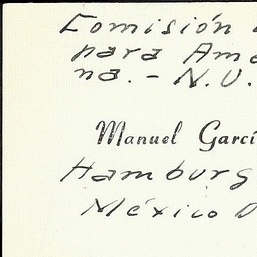 Comisión
para Amé
na. - N.U.
Manuel Garcí
Hamburg
México D